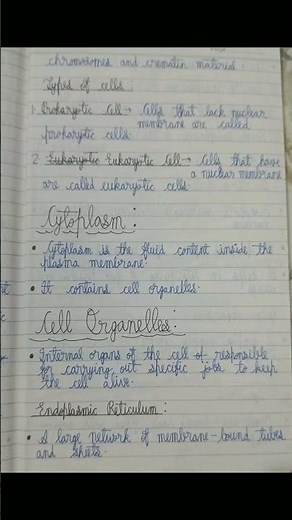 chromosomes and cromatin material.
Types of cells:
1. Prokaryotic Cell → Cells that lack nuclear
membrane are called
prokaryotic cells.
2. Eukaryotic Eukaryotic Cell → Cells that have
a nuclear membrane
are called eukaryotic cells.
Cytoplasm:
• Cytoplasm is the fluid content inside the
plasma membrane.
• It contains cell organelles.
Cell Organelles:
• Internal organs of the cell of responsible
for carrying out specific jobs to keep
the cell alive.
Endoplasmic Reticulum:
• A large network of membrane-bound tubes
and sheets.